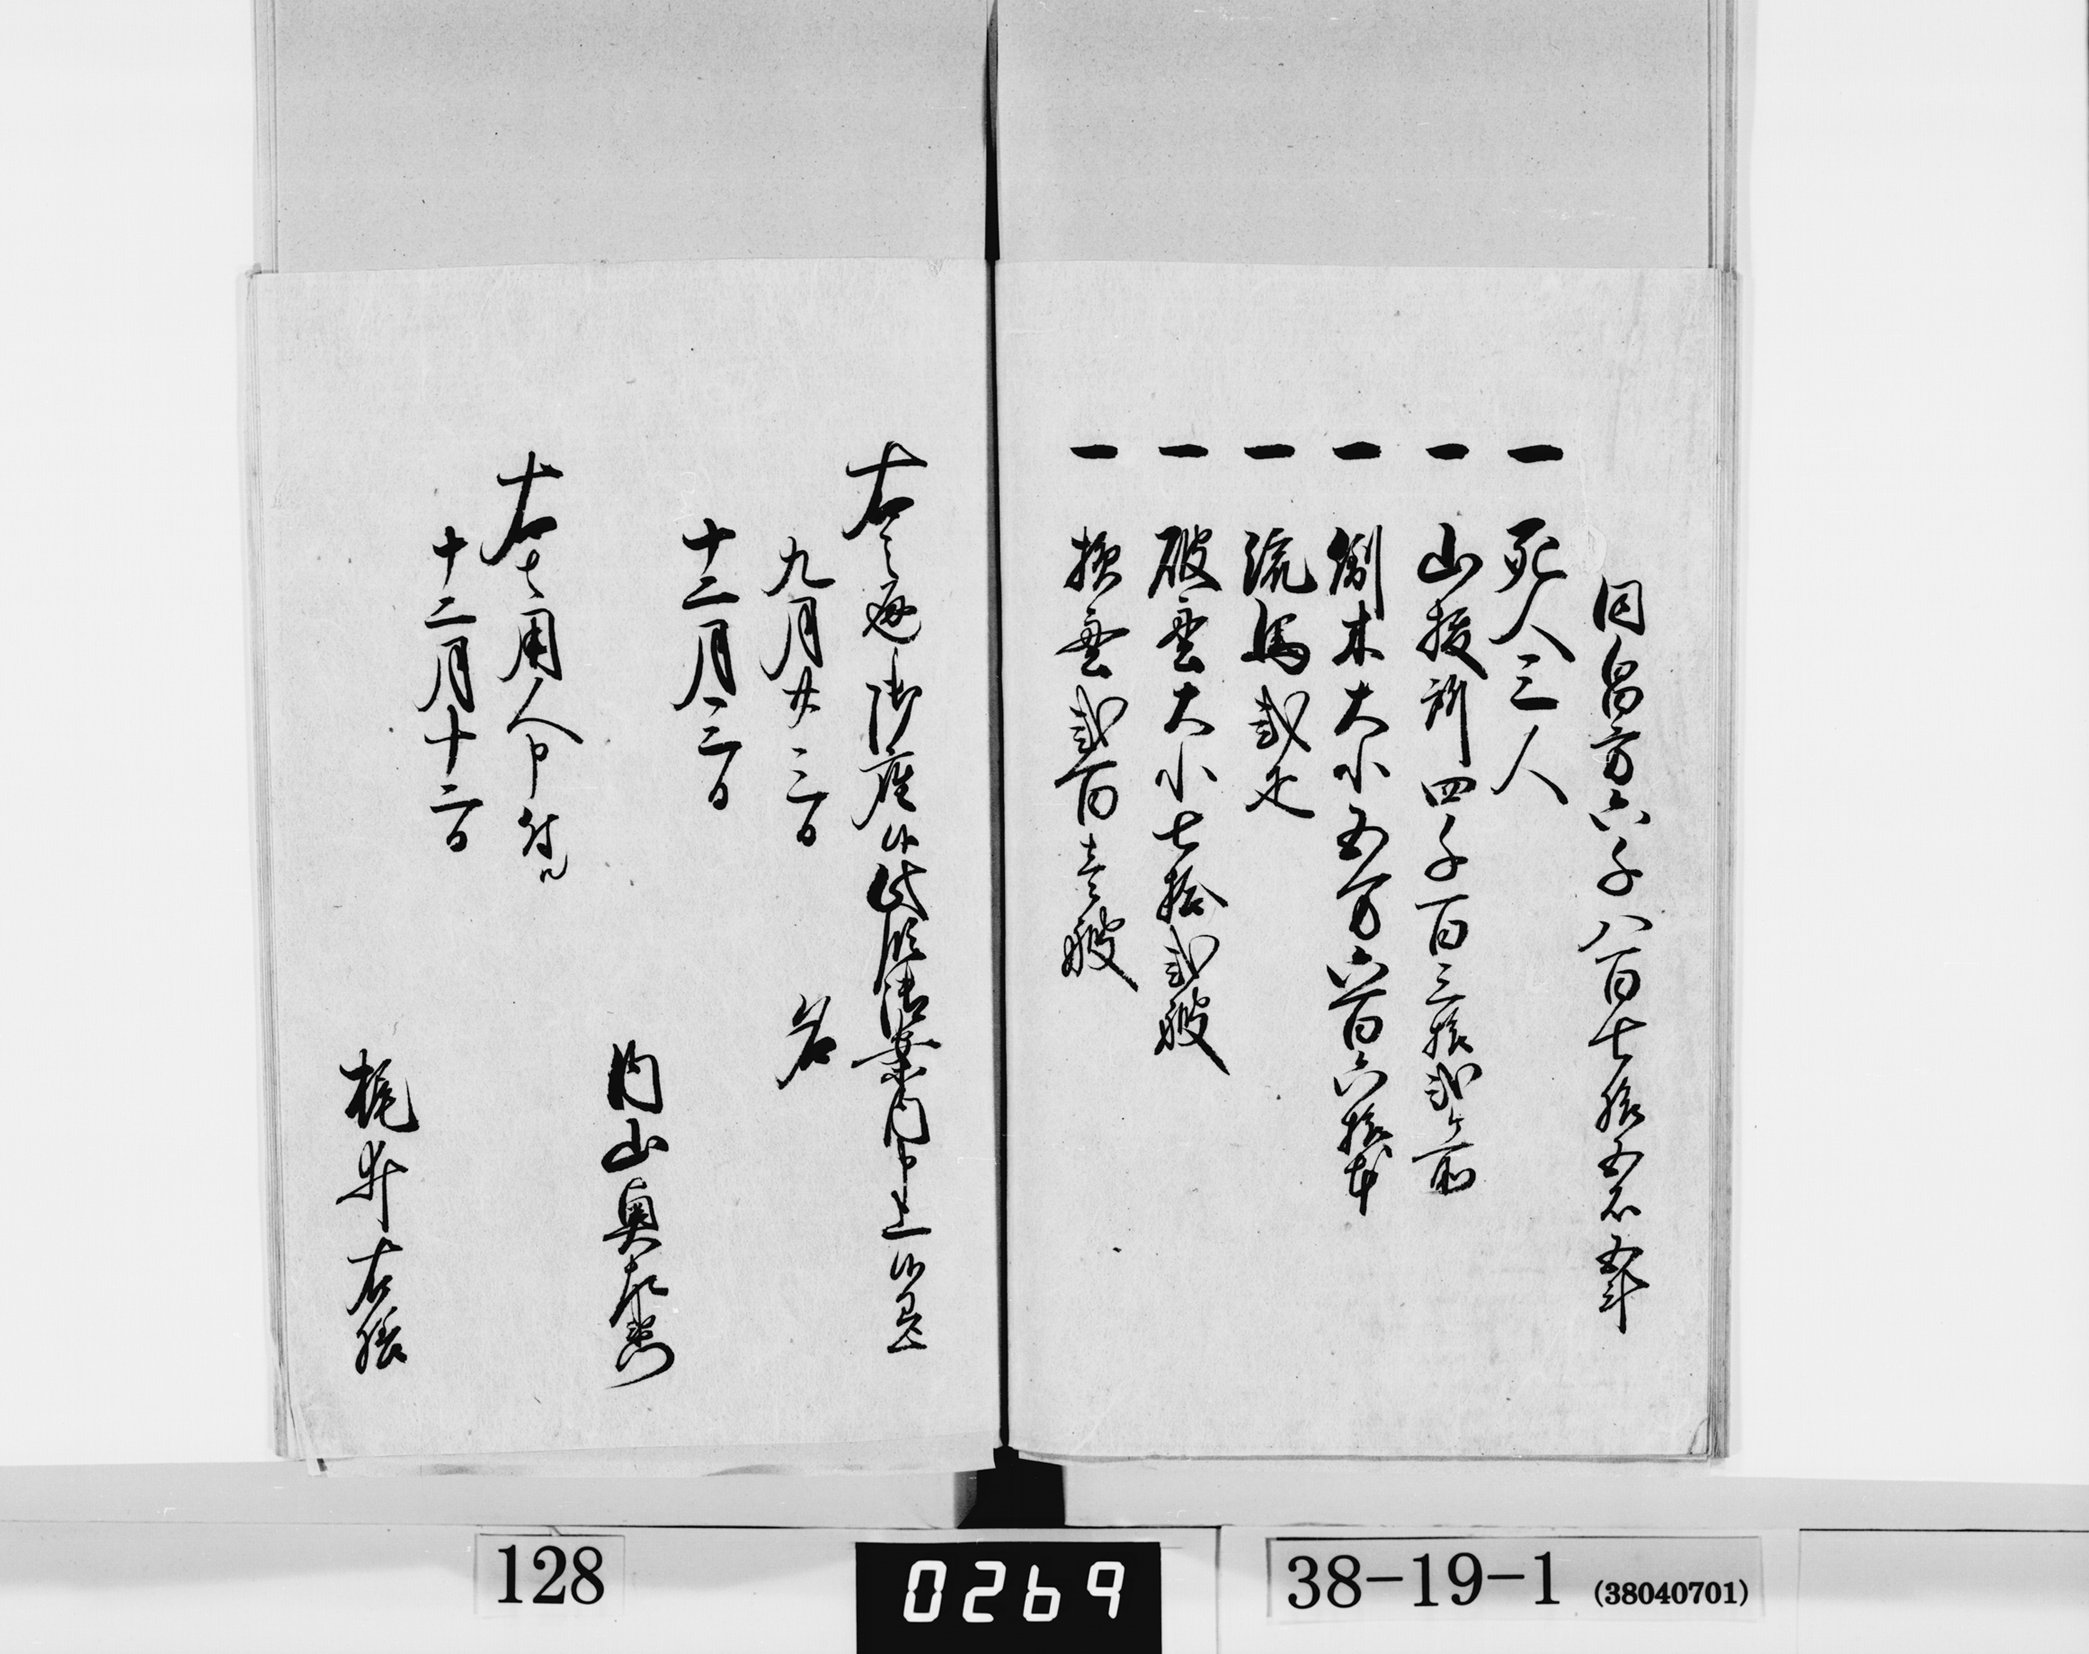 同畠方六千八百七拾五石五斗
一 死人三人
一 山抜所四千百三拾弐ヶ所
一 倒木大小五万六百六拾本
一 流馬弐疋
一 破船大小七拾弐艘
一 損船弐百壱艘
右之通御座候此段御案内申上候以上
九月廿三日 名
十二月三日
内山奥左衛門
右之用人申付ル
十二月十二日
梶井右膳
128
0269
38-19-1 (38040701)